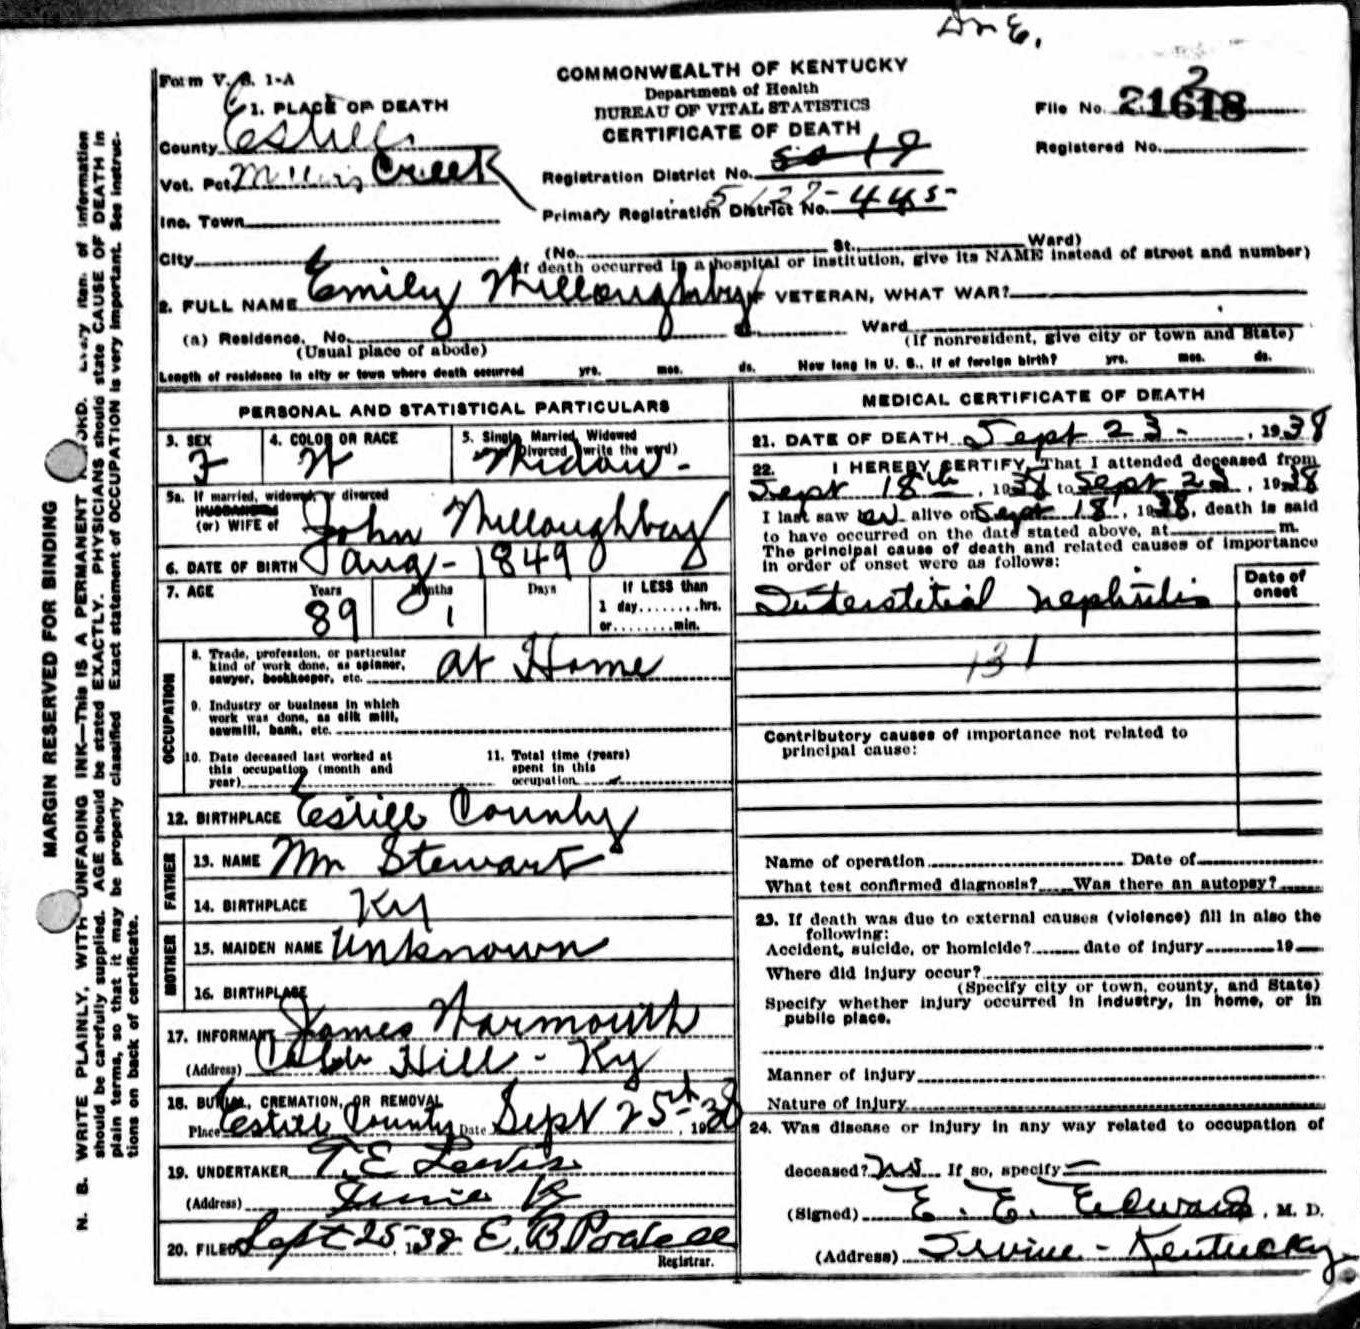 Dr E.
Form V. S. 1-A
COMMONWEALTH OF KENTUCKY
Department of Health
BUREAU OF VITAL STATISTICS
CERTIFICATE OF DEATH
File No. 21618
2
Registered No.
1. PLACE OF DEATH
County Estill
Vot. Pct Millers Creek
Inc. Town
City
Registration District No. 50 19
Primary Registration District No. 445
(No. St. Ward)
(If death occurred in a hospital or institution, give its NAME instead of street and number)
2. FULL NAME Emily Willoughby IF VETERAN, WHAT WAR?
(a) Residence, No. Ward
(Usual place of abode) (If nonresident, give city or town and State)
Length of residence in city or town where death occurred yrs. mos. ds. How long in U. S., if of foreign birth? yrs. mos. ds.
PERSONAL AND STATISTICAL PARTICULARS
3. SEX F
4. COLOR OR RACE W
5. Single, Married, Widowed
or Divorced (write the word)
Widow -
5a. If married, widowed, or divorced
HUSBAND of
(or) WIFE of John Willoughby
6. DATE OF BIRTH Aug - 1849
7. AGE Years 89 Months 1 Days If LESS than
1 day........hrs.
or........min.
OCCUPATION
8. Trade, profession, or particular
kind of work done, as spinner,
sawyer, bookkeeper, etc. at Home
9. Industry or business in which
work was done, as silk mill,
sawmill, bank, etc.
10. Date deceased last worked at
this occupation (month and
year)
11. Total time (years)
spent in this
occupation
12. BIRTHPLACE Estill County
FATHER
13. NAME Wm Stewart
14. BIRTHPLACE Ky
MOTHER
15. MAIDEN NAME Unknown
16. BIRTHPLACE
17. INFORMANT James Warmouth
(Address) Hill - Ky
18. BURIAL, CREMATION, OR REMOVAL
Place Estill County Date Sept 25th, 1938
19. UNDERTAKER T. E Lewis
(Address) Irvine Ky
20. FILED Sept 25, 1938 E. B
Registrar.
MEDICAL CERTIFICATE OF DEATH
21. DATE OF DEATH Sept 23 - , 1938
22. I HEREBY CERTIFY, That I attended deceased from
Sept 18th, 1938 to Sept 23, 1938
I last saw er alive on Sept 18, 1938, death is said
to have occurred on the date stated above, at m.
The principal cause of death and related causes of importance
in order of onset were as follows:
Date of
onset
Interstitial nephritis
131
Contributory causes of importance not related to
principal cause:
Name of operation Date of
What test confirmed diagnosis? Was there an autopsy?
23. If death was due to external causes (violence) fill in also the
following:
Accident, suicide, or homicide? date of injury 19
Where did injury occur?
(Specify city or town, county, and State)
Specify whether injury occurred in industry, in home, or in
public place.
Manner of injury
Nature of injury
24. Was disease or injury in any way related to occupation of
deceased? No If so, specify —
(Signed) E. E. Edwards, M. D.
(Address) Irvine - Kentucky
MARGIN RESERVED FOR BINDING
N. B. WRITE PLAINLY, WITH UNFADING INK—This IS A PERMANENT RECORD. Every item of information
should be carefully supplied. AGE should be stated EXACTLY. PHYSICIANS should state CAUSE OF DEATH in
plain terms, so that it may be properly classified. Exact statement of OCCUPATION is very important. See instruc-
tions on back of certificate.